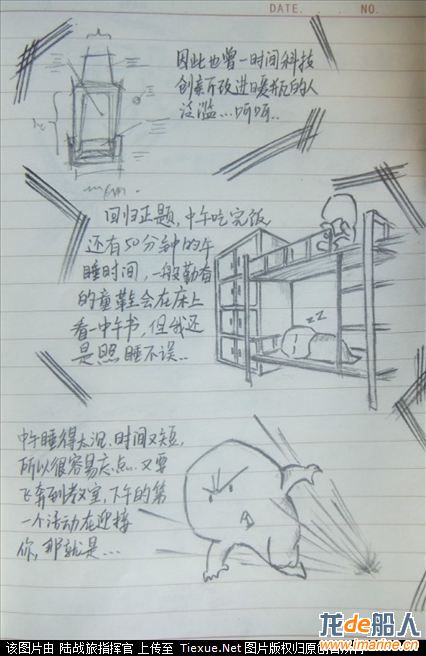 DATE. . . NO.
因此也曾一时间科技
创新所改进暖瓶的人
泛滥...呵呵..
回归正题,中午吃完饭
还有50分钟的午
睡时间,一般勤奋
的童鞋会在床上
看一中午书,但我还
是照睡不误..
zZ
中午睡得太沉,时间又短,
所以很容易忘点..又要
飞奔到教室,下午的第
一个活动在迎接
你,那就是...
龙de船人
该图片由 陆战旅指挥官 上传至 Tiexue.Net 图片版权归原创者所有